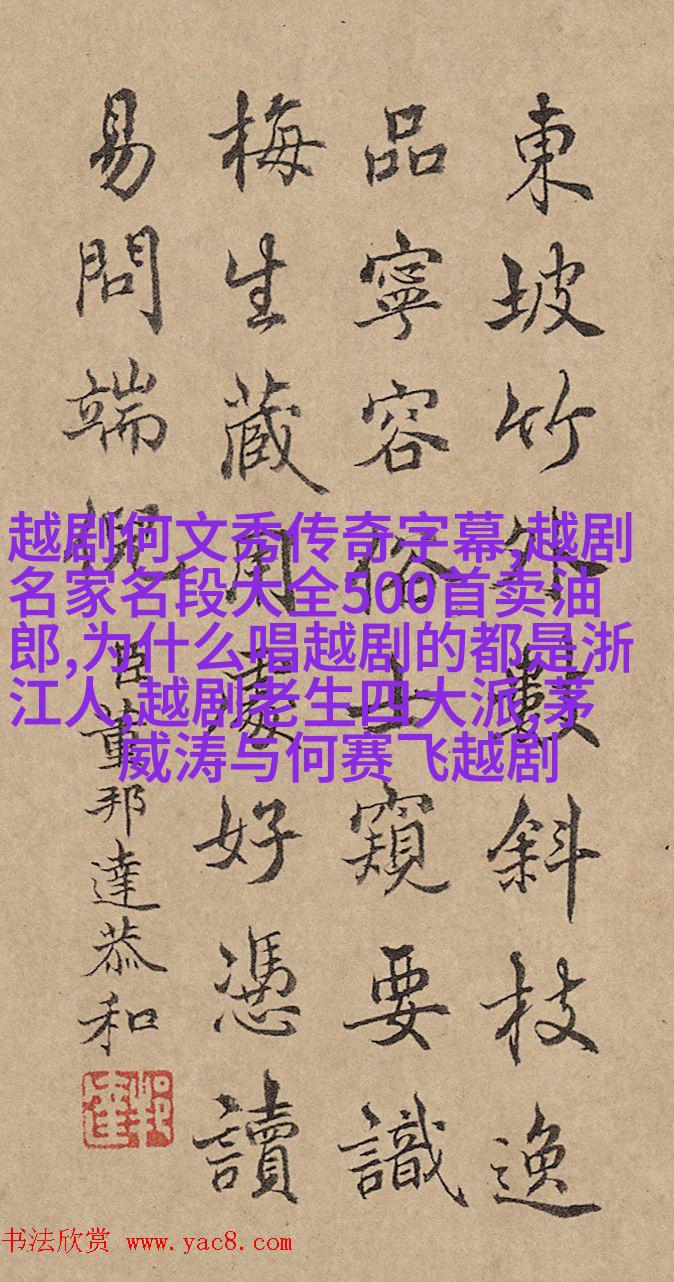 東坡竹外數斜枝逸
品寧容俗士窺要識
梅生藏用處好憑讀
易問端倪臣董邦達恭和
越剧何文秀传奇字幕,越剧
名家名段大全500首卖油
郎,为什么唱越剧的都是浙
江人,越剧老生四大派,茅
威涛与何赛飞越剧
书法欣赏 www.yac8.com